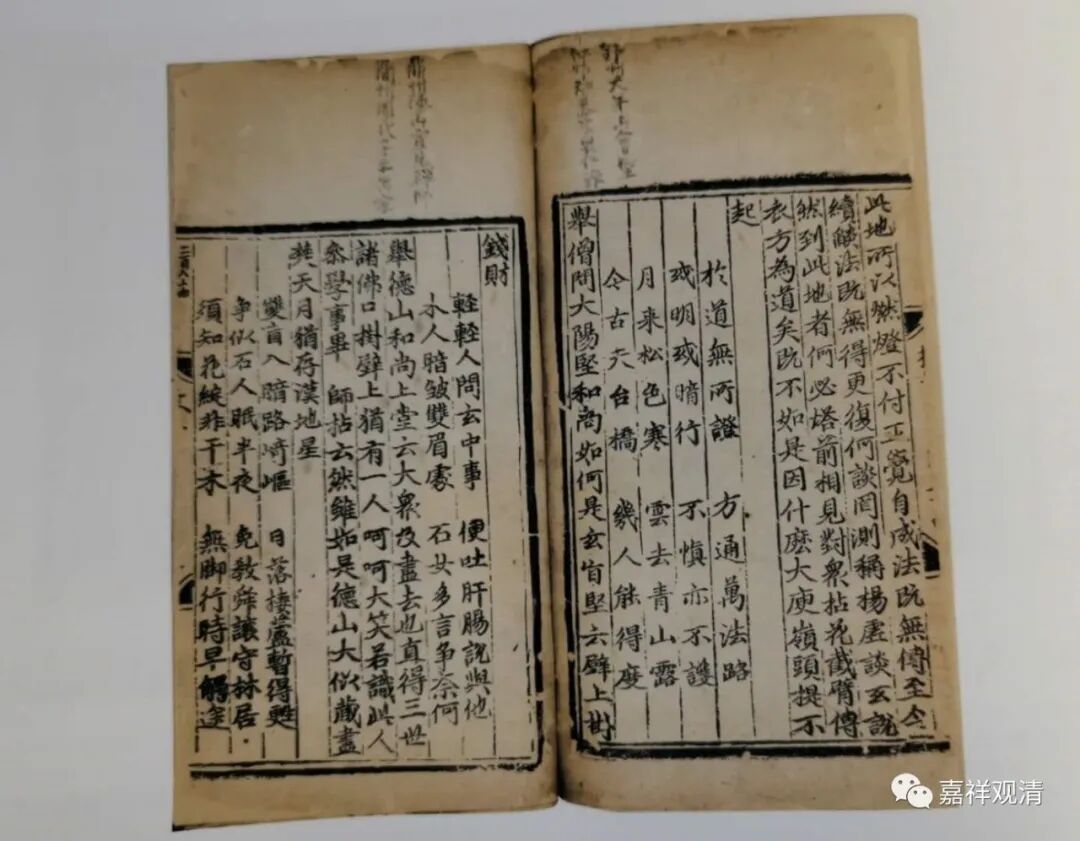 此地所以燃燈不付正覺自成法既無傳至今
續燄法既無得更復何談罔測稱揚虛談玄說
然到此地者何必塔前相見對眾拈花截臂傳
衣方為道矣既不如是因什麼大庾嶺頭提不
起
於道無所證 方通萬法路
或明或暗行 不慎亦不護
月来松色寒 雲去青山露
今古天台橋 幾人能得度
舉僧問大陽堅和尚如何是玄旨堅云壁上掛
錢財
輕輕人問玄中事 便吐肝腸說與他
木人暗皺雙眉處 石女多言爭奈何
舉德山和尚上堂云大眾及盡去也直得三世
諸佛口掛壁上猶有一人呵呵大笑若識此人
叅學事畢 師拈云然雖如是德山大似藏盡
楚天月猶存漢地星
雙盲入暗路崎嶇 日落棲蘆暫得甦
争似石人眠半夜 免教舜讓守林居
須知花綻非干木 無脚行時早觸途
嘉祥观清